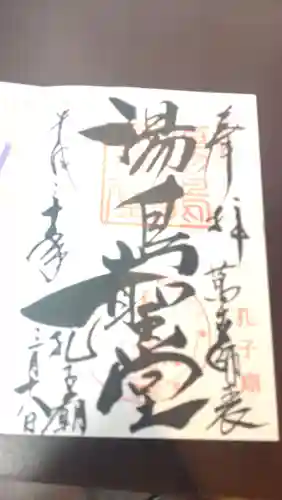 奉拝
萬世師表
孔子廟
湯島聖堂
孔子廟
平成三十年
三月十八日